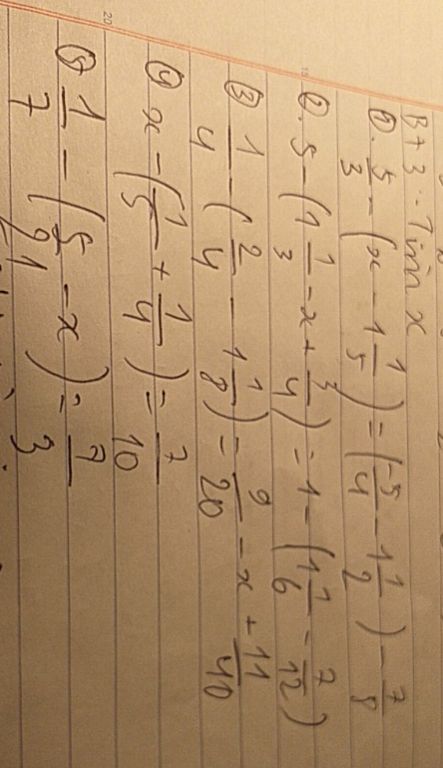 B+3: Tìm x
①. 5/3 - (x - 1 1/5) = (-5/4 - 1 1/2) - 7/8
②. 5 - (1 1/3 - x + 3/4) = 1 - (1 1/6 - 7/12)
③ 1/4 - (2/4 - 1 1/8) = 9/20 - x + 11/40
④ x - (1/5 + 1/4) = 7/10
⑤. 1/7 - (5/21 - x) = 7/3
20